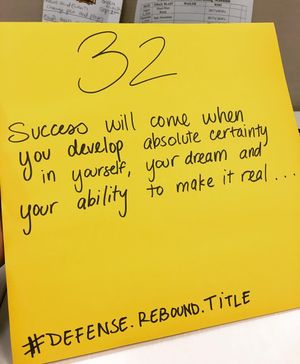 32
Success will come when
you develop absolute certainty
in yourself, your dream and
your ability to make it real ...
#DEFENSE.REBOUND.TITLE